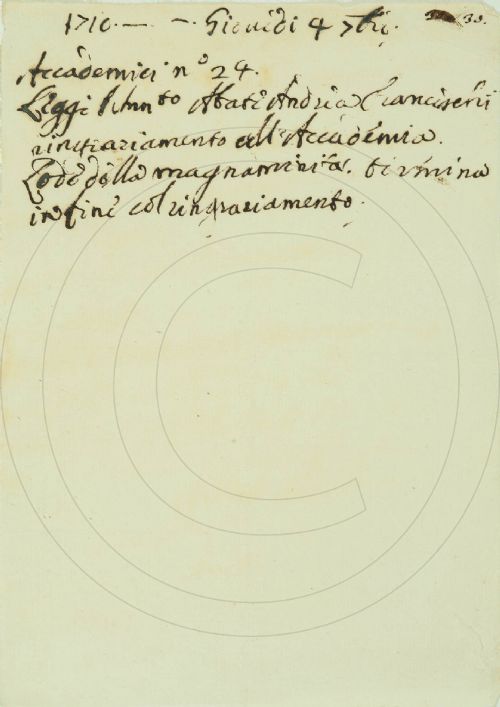 1710. — — Giovidi 4 7bre. 30.
Accademici n° 24.
Leggé l'Ab Andrea Francischi
ringraziamento all'Accademia.
Lode della magnanimità. termina
in fine col ringraziamento.